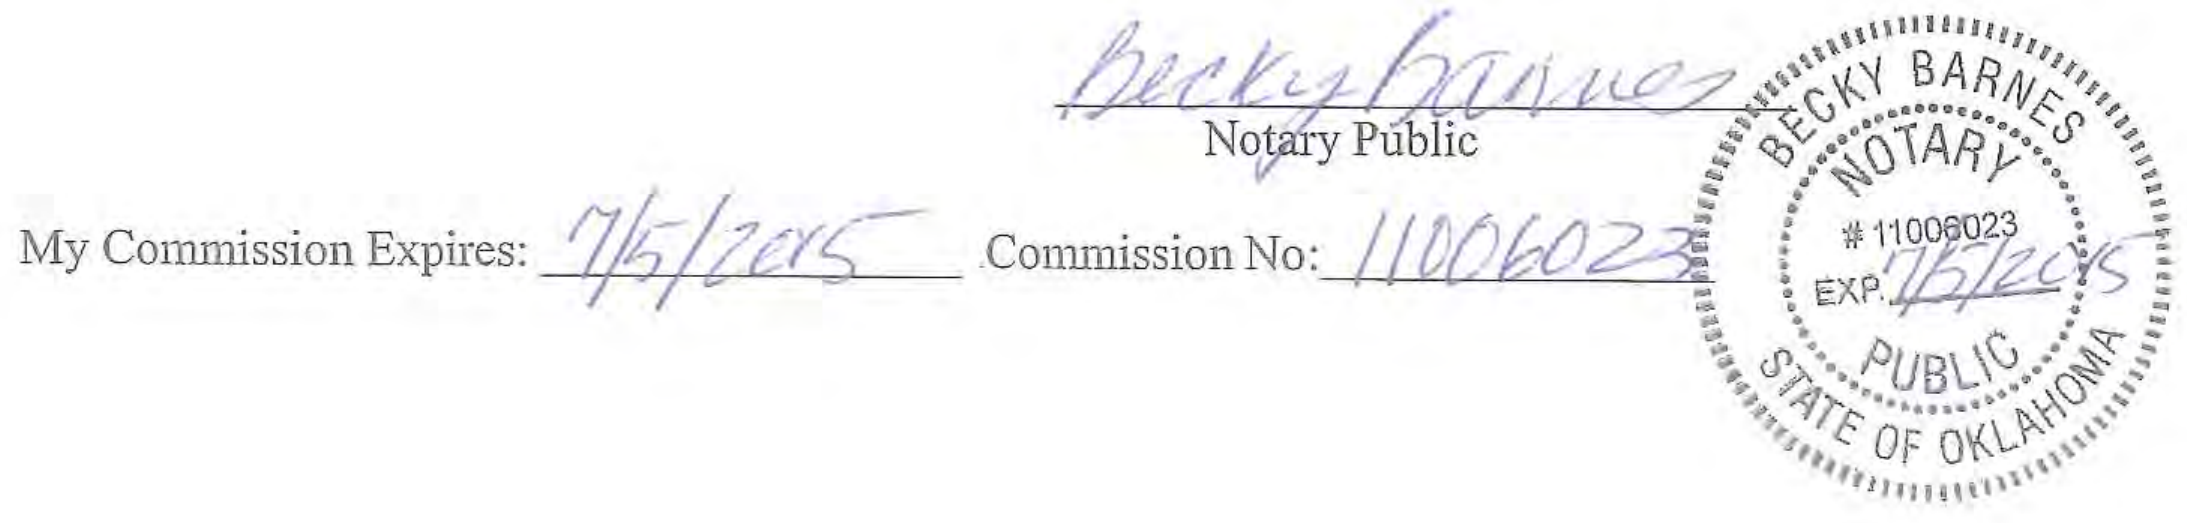 Becky Barnes
Notary Public
My Commission Expires: 7/5/2015 Commission No: 11006023
BECKY BARNES
NOTARY
# 11006023
EXP. 7/5/2015
PUBLIC
STATE OF OKLAHOMA